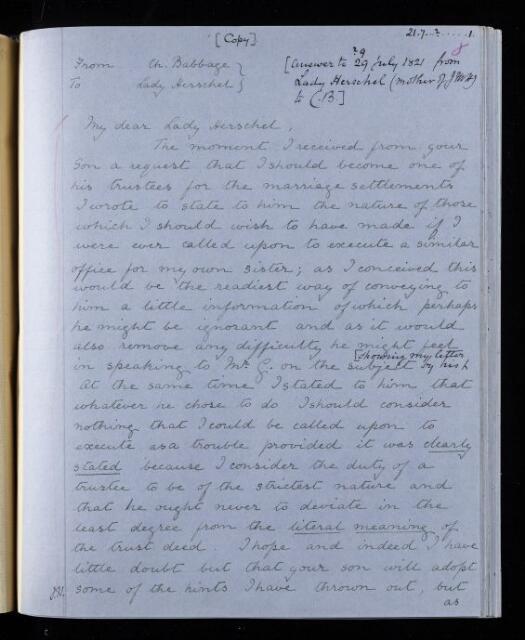 21.7..?.....1.
[Copy] 8
From Ch. Babbage } [Answer to ?9 29 July 1821 from
To Lady Herschel } Lady Herschel (mother of J.F.W.H)
to C.B.]
My dear Lady Herschel,
The moment I received from your
Son a request that I should become one of
his trustees for the marriage settlements
I wrote to state to him the nature of those
which I should wish to have made if I
were ever called upon to execute a similar
office for my own sister; as I conceived this
would be the readiest way of conveying to
him a little information of which perhaps
he might be ignorant and as it would
also remove any difficulty he might feel
[showing my letter
in speaking to Mr. G. on the subject by his
At the same time I stated to him that
whatever he chose to do I should consider
nothing that I could be called upon to
execute as a trouble provided it was clearly
stated because I consider the duty of a
trustee to be of the strictest nature and
that he ought never to deviate in the
least degree from the literal meaning of
the trust deed. I hope and indeed I have
little doubt but that your son will adopt
some of the hints I have thrown out, but
as